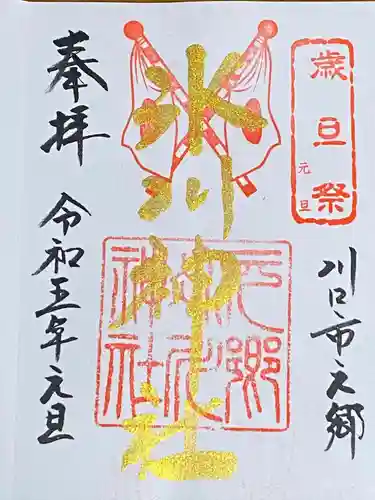 歳旦祭
元旦
川口市元郷
氷川神社
元郷
氷川
神社
奉拝
令和五年元旦